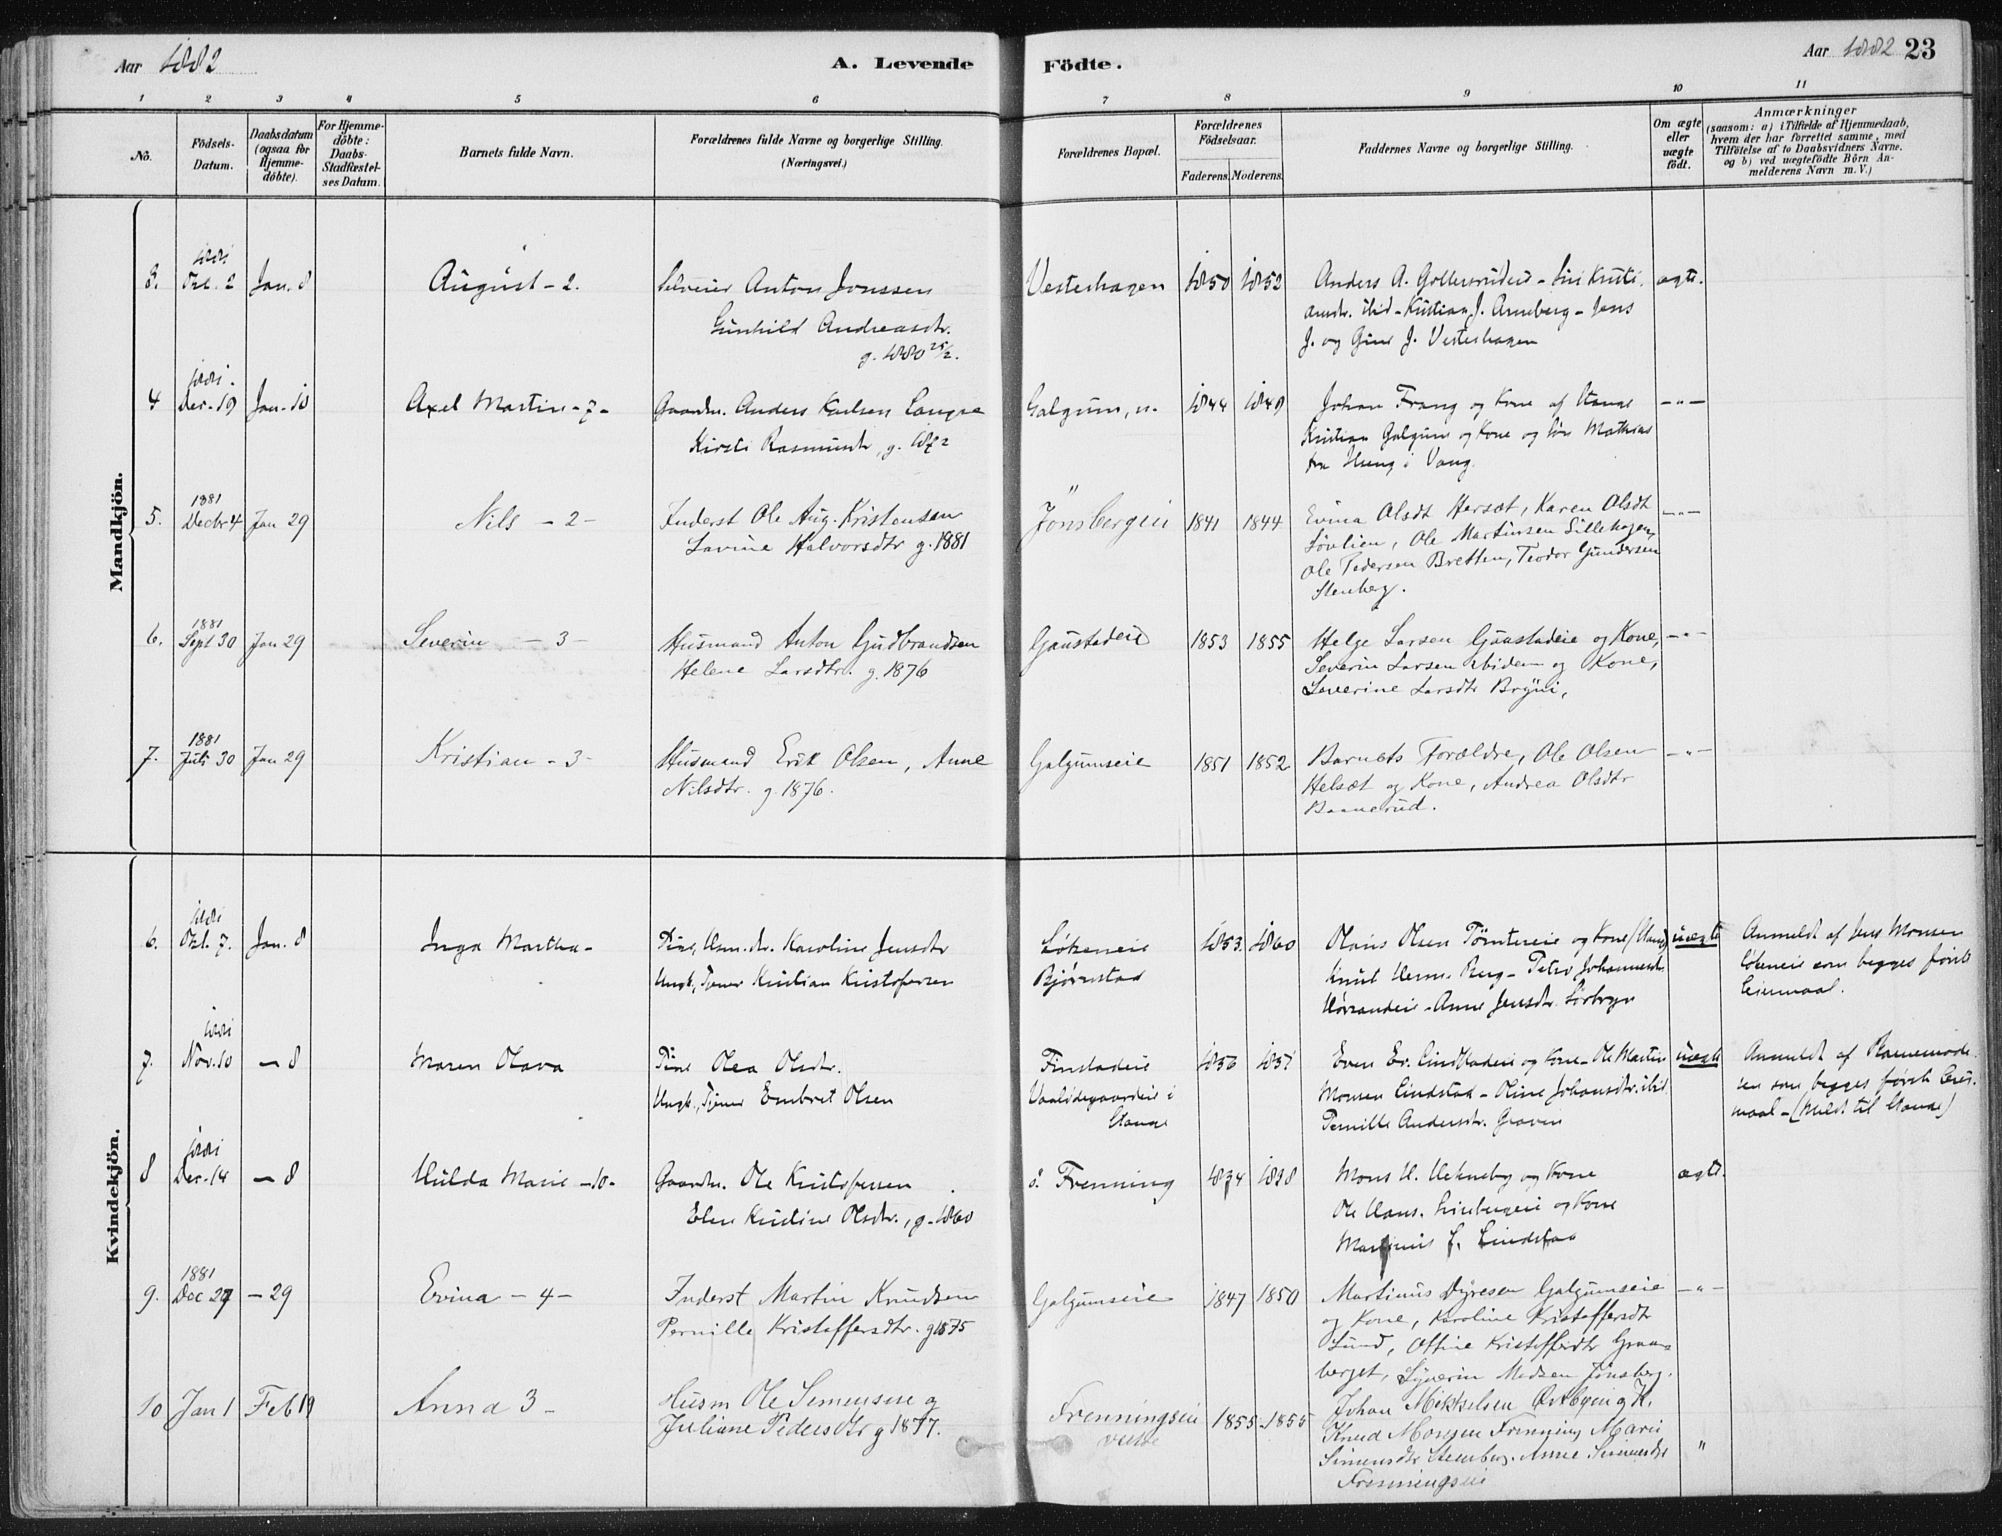 Aar 1882
A. Levende
Födte.
Aar 1882 23
1 2 3 4 5 6 7 8 9 10 11
No.
Födsels-
Datum.
Daabsdatum
(ogsaa for
Hjemme-
döbte).
For Hjemme-
döbte:
Daabs-
Stadfæstel-
ses Datum.
Barnets fulde Navn.
Forældrenes fulde Navne og borgerlige Stilling.
(Næringsvei.)
Forældrenes Bopæl.
Forældrenes
Födselsaar.
Faderens. Moderens.
Faddernes Navne og borgerlige Stilling.
Om ægte
eller
uægte
födt.
Anmærkninger
(saasom: a) i Tilfælde af Hjemmedaab,
hvem der har forrettet samme, med
Tilföielse af to Daabsvidners Navne.
og b) ved uægtefödte Börn An-
melderens Navn m. V.)
Mandkjön.
3. 1881 2 Jan. 8 August - 2. Anton Jonssen Vesterhagen 1850 1852 Anders A. ægte.
Gunhild Andreasdr. Kristian J. Arneberg - Jens
g. 1880 25/2. J. og J. Vesterhagen
4 1881. Dec. 19 Jan. 10 Axel Martin - 7 - Gaardm. Anders Karlsen Galgum, n. 1844 1849 Johan Frang og Kone af Stange — " —
Kirsti Rasmusdr, g. 1872 Kristian Galgum og Kone og Mathias
i Vang.
5. 1881 Decbr 4 Jan 29 Nils - 2 - Inderst Ole Aug. Kristensen Jönsbergeie 1841 1844 Evina Olsdt Hersæt, Karen Olsdt — " —
Lavine Halvorsdtr g. 1881 Løvlien, Ole Martinsen Lillehagen,
Ole Pedersen Bretten, Teodor Gundersen
Stenberg.
6. 1881 Sept 30 Jan 29 Severin - 3 - Husmand Anton Gudbrandsen Gaustadeie 1853 1855 Helge Larsen Gaustadeie og Kone, — " —
Helene Larsdtr. g. 1876 Severin Larsen ibidem og Kone,
Severine Larsdtr Bryni,
7. 1881 Juli 30 Jan 29 Kristian - 3 - Husmand Erik Olsen, Anne Galgumseie 1851 1852 Barnets Forældre, Ole Olsen — " —
Nilsdtr. g. 1876. Helsæt og Kone, Andrea Olsdtr
Baanerud.
Kvindekjön.
6. 1881 Okt. 7. Jan. 8 Inga Martha - Pige, Karoline Jensdtr Løkeneie 1853. 1860 Olaus Olsen Tømtereie og Kone (Stange) uægte Anmeldt af Jens Monsen
Ungk., Tjener Kristian Kristofersen Bjørnstad Knut Berg - Johannesdr. Løkeneie som begges første
- Anne Jensdtr. Sørbryn Leiermaal.
7. 1881 Nov. 10 — 8 Maren Olava Pige Olea Olsdtr. Finstadeie 1856 1857 Even Er. Lindstadeie og Kone - Ole Martin uægte Anmeldt af
Ungk., Tjener Embret Olsen i Monsen Lindstad - Oline Johansdtr. ibid. som begges første Leier-
Stange Pernille Andersdtr. Graven maal - (Meldt til Stange)
8 1881 Dec. 14 — 8 Hulda Marie - 10 - Gaardm. Ole Kristofersen ö. Frenning 1834 1838 Mons H. og Kone ægte.
Elen Kristine Olsdtr., g. 1860 Ole Hans. og Kone
Martinus L. Lindstad
9. 1881 Dec 27 — 29 Evina - 4 - Inderst Martin Knudsen Galgumseie 1847 1850 Martinus Dyresen Galgumseie — " —
Pernille Kristoffersdtr. g 1875 og Kone, Karoline Kristoffersdtr
Lund, Oftine Kristoffersdtr Graa-
berget, Syverin Madsen Jönsberg.
10 Jan 1 Feb 19 Anna 3 - Husm Ole Simensen og Frenningseie 1855 1855 Johan Mikkelsen og K.
Juliane Pedersdtr g 1877. vestre Knud Monsen Frenning Mari
Simensdtr Stenberg. Anne Simensdtr "
Frenningseie